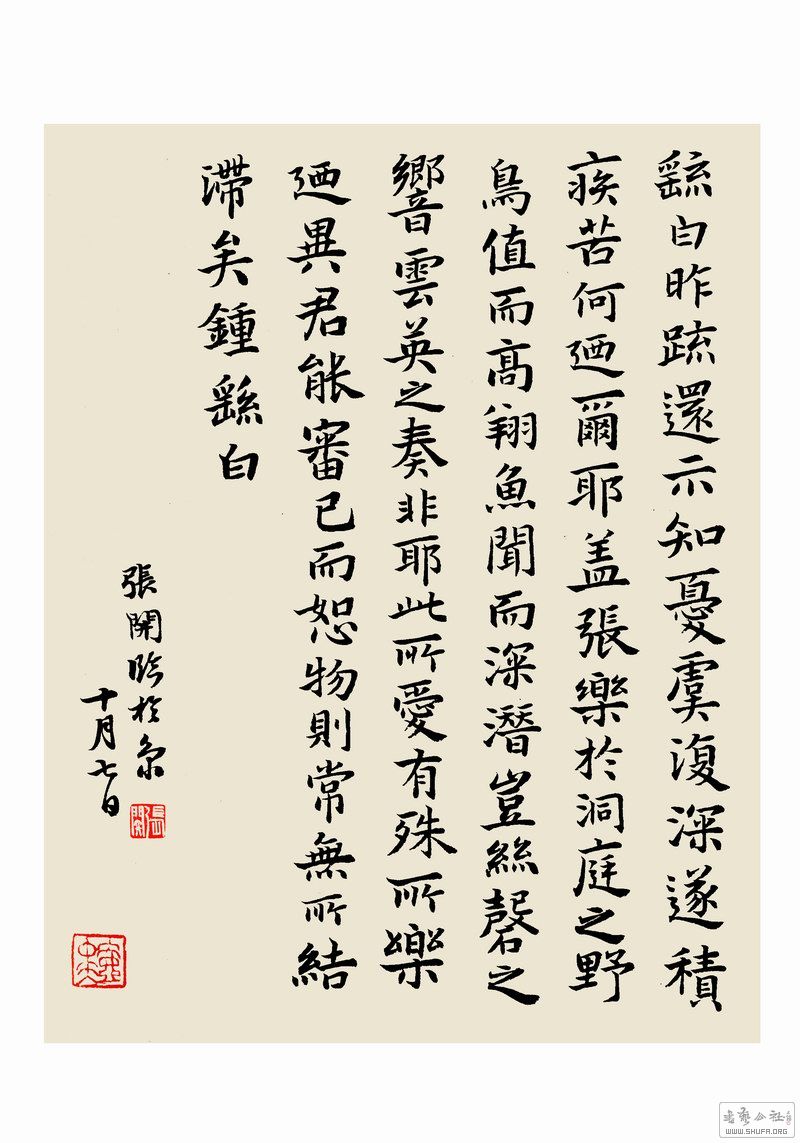 繇白昨疏還示知憂虞復深遂積
疾苦何迺爾耶盖張樂於洞庭之野
鳥值而高翔魚聞而深潛豈絲磬之
響雲英之奏非耶此所愛有殊所樂
迺異君能審己而恕物則常無所結
滯矣鍾繇白
張開臨於京
十月七日
張開
書藝公社
WWW.SHUFA.ORG